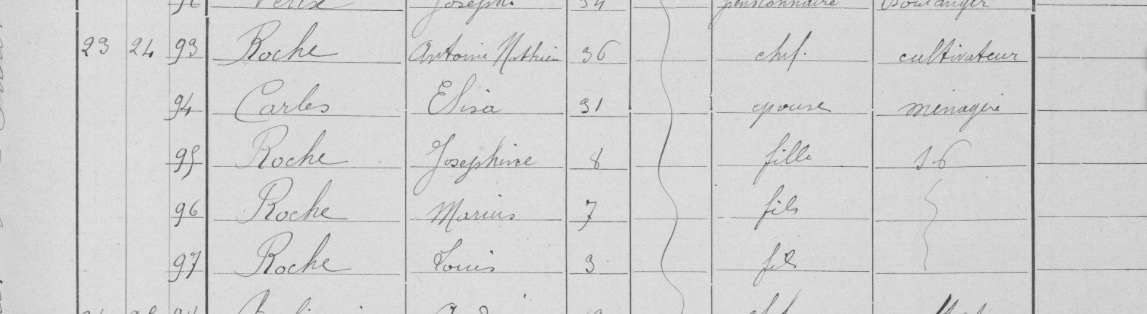 Joseph 34 pensionnaire boulanger
23 24 93 Roche Antoine Mathieu 36 chef cultivateur
94 Carles Elisa 31 epouse ménagère
95 Roche Josephine 8 fille
96 Roche Marius 7 fils
97 Roche Louis 3 fils